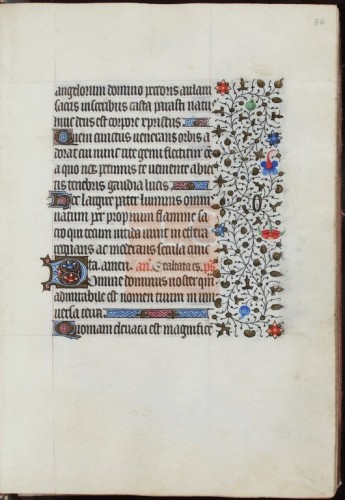 angelorum domino pectoris aulam
sacris visceribus casta parasti natus
hinc deus est corpore xpristus
Quem cunctus venerans orbis a
dorat cui nunc rite genu flectitur
a quo petimus te veniente abiec
tis tenebris gaudia lucis
Hec largire pater luminis omnis
natum per proprium flamine sa
cro qui tecum nitida vivit in ethera
regnans ac moderans secula cuncta
amen. an. Exaltata es. ps
Domine dominus noster quam
admirabile est nomen tuum in uni
versa terra
Quoniam elevata est magnifice